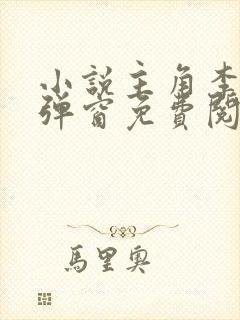 小說主角李
彈窗免費閱
馬里奧